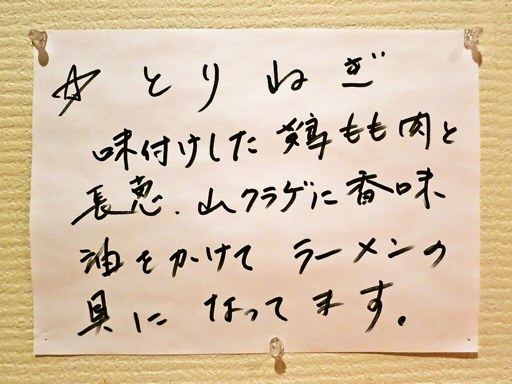 ☆とりねぎ
味付けした鶏もも肉と
長恵、山クラゲに香味
油をかけて ラーメンの
具に なってます。